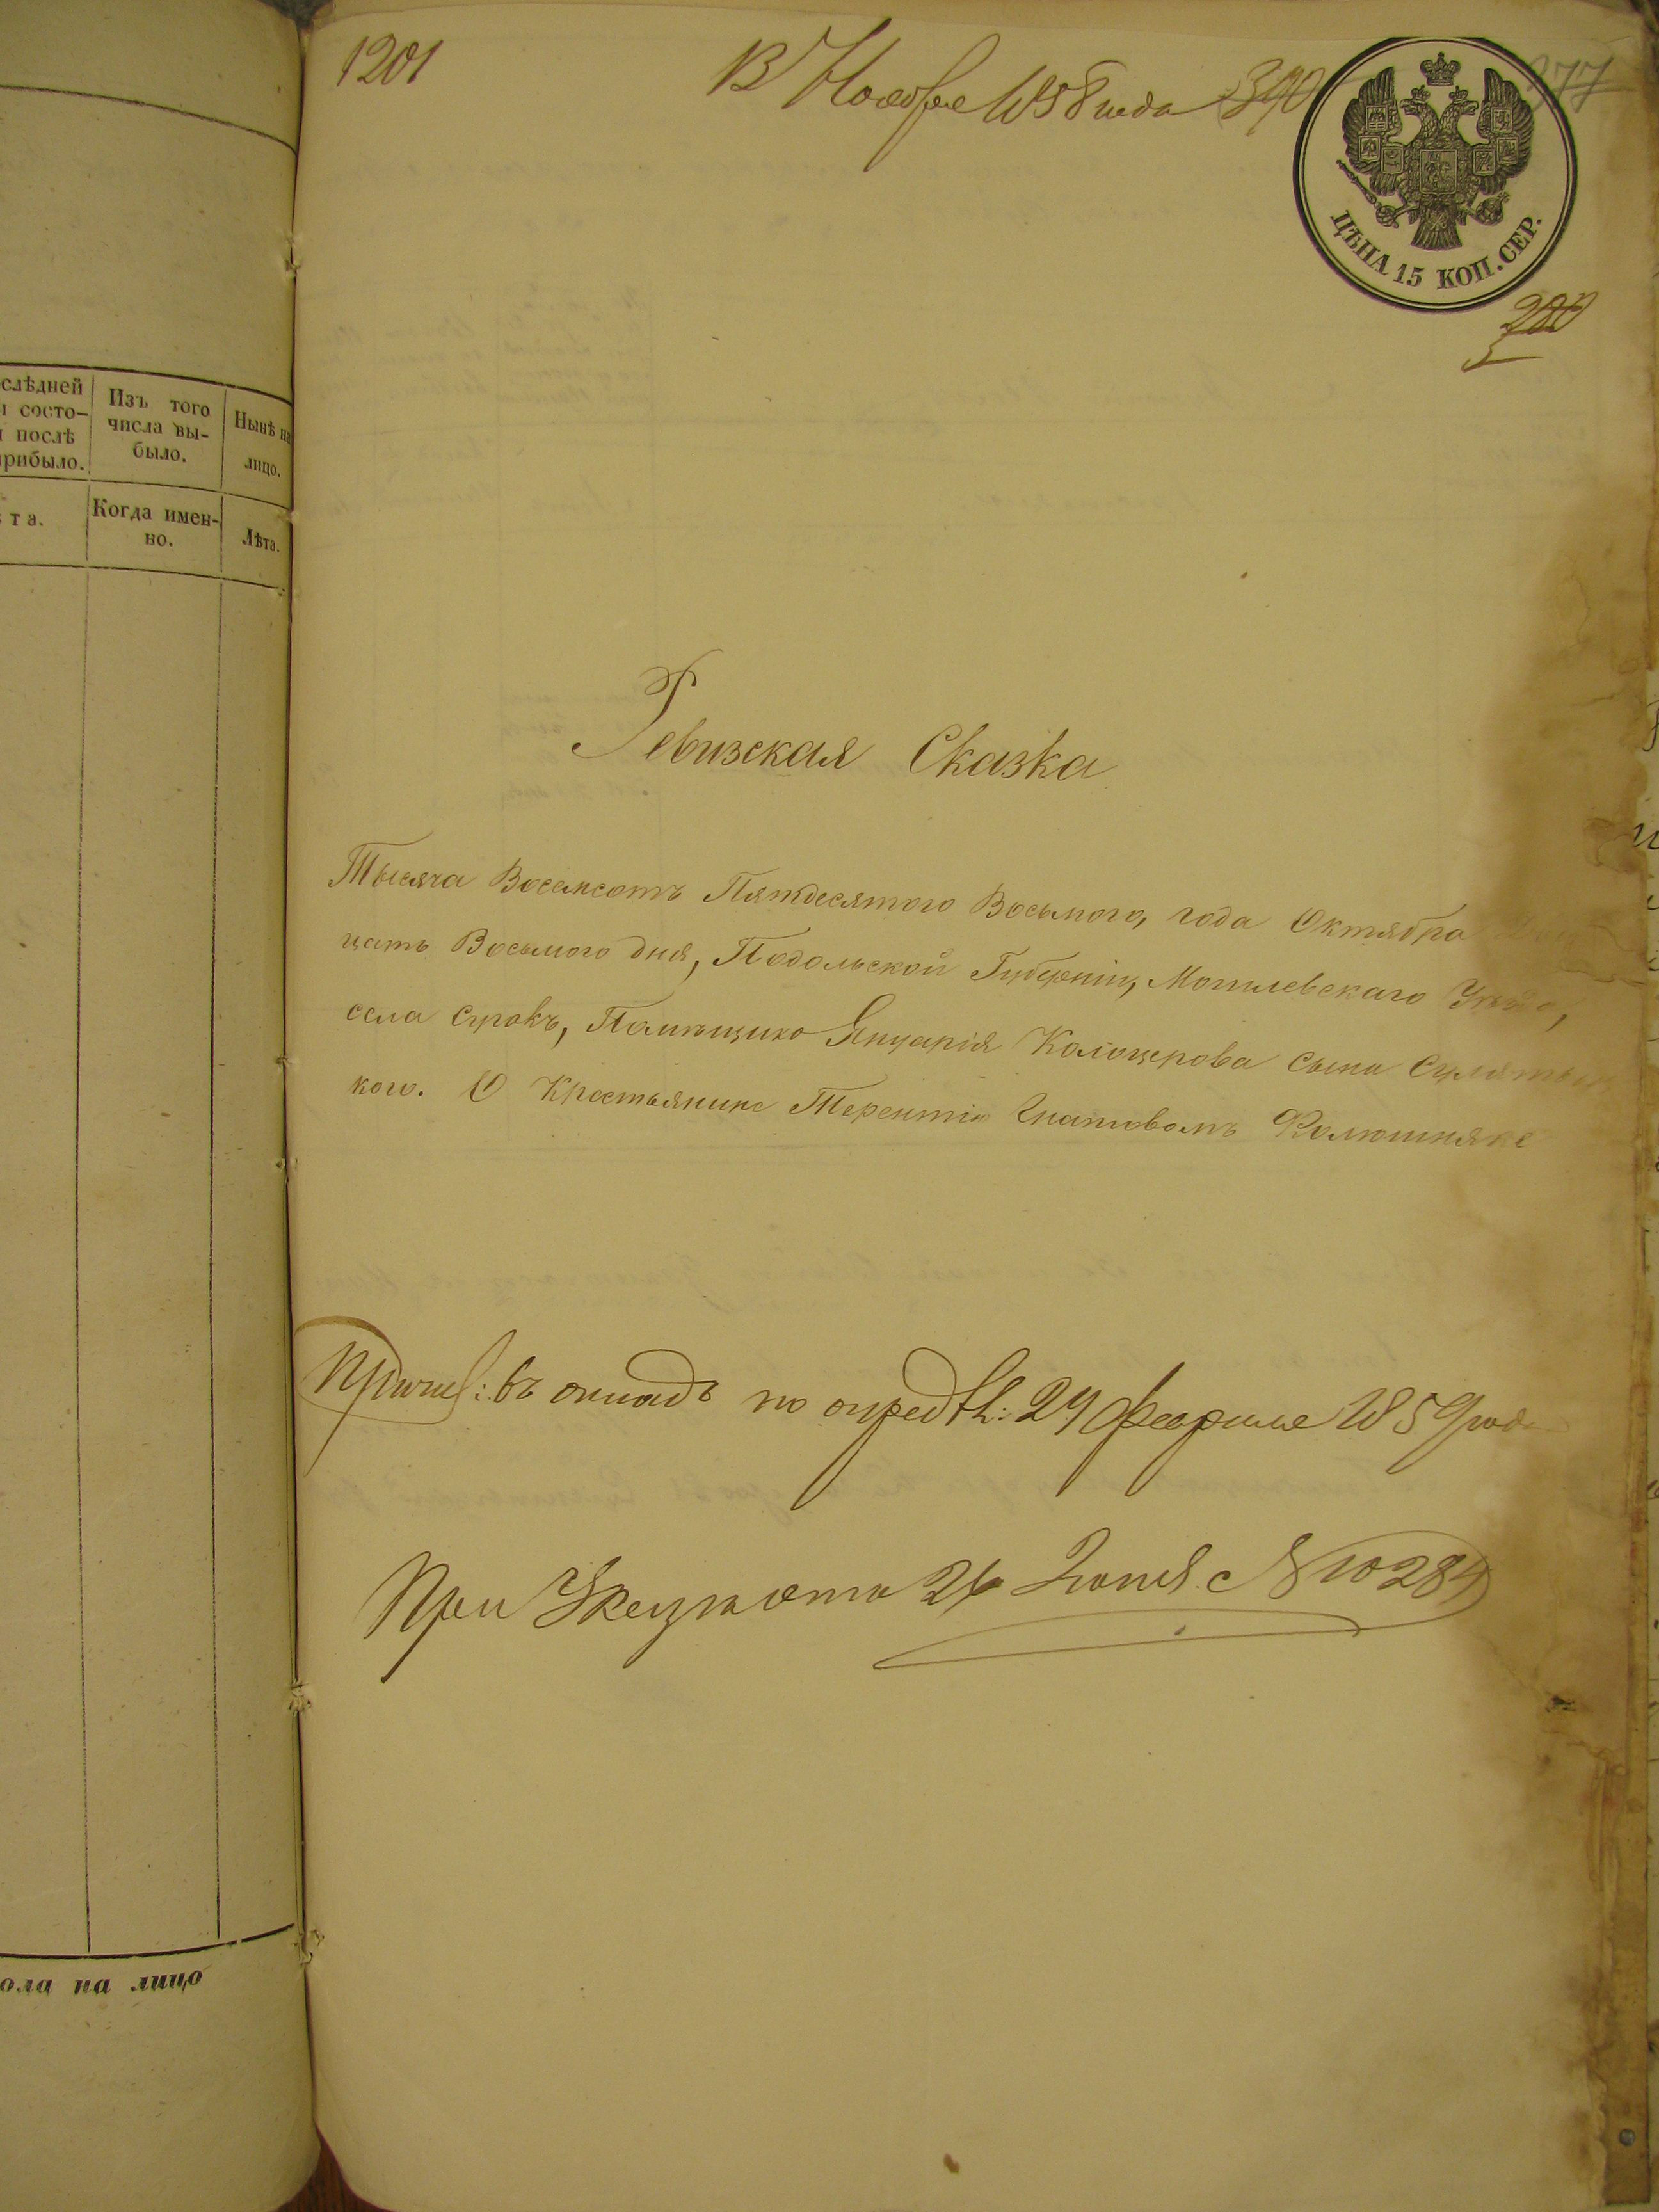 слѣдней
состо-
послѣ
рибыло.
Изъ того
числа вы-
было.
Нынѣ на
лицо.
та.
Когда имен-
но.
Лѣта.
ола на лицо
1201
13 Ноября 1858 года 390
377
ЦѢНА 15 КОП. СЕР.
280
Ревизская Сказка
Тысяча Восемсотъ Пятдесятого Восьмого, года Октября
цать Восьмого дня, Подольской Губерніи, Могилевскаго Уѣзда,
села Сугакъ, Помѣщика Януарія Калоцерова сына Сулятыц
кого. О Крестьянине Терентіи Игнатовомъ
Причис: въ окладъ по опредѣл: 24 февраля 1859 года
При Указѣ отъ 26 Іюня № 10284